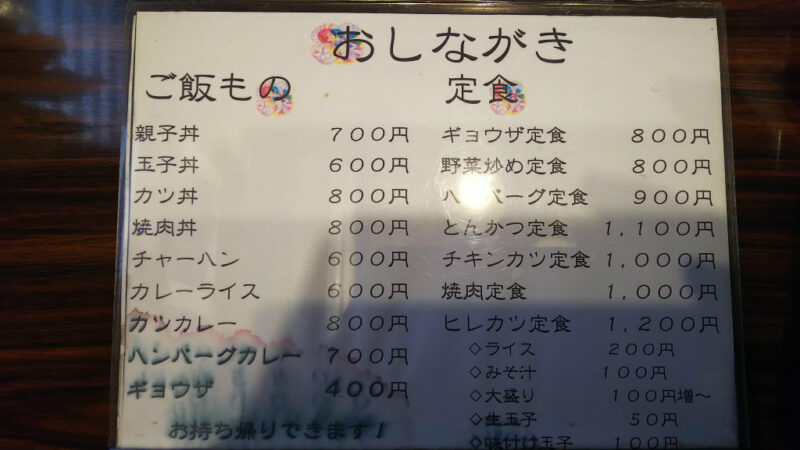 おしながき
ご飯もの
親子丼 ７００円
玉子丼 ６００円
カツ丼 ８００円
焼肉丼 ８００円
チャーハン ６００円
カレーライス ６００円
カツカレー ８００円
ハンバーグカレー ７００円
ギョウザ ４００円
お持ち帰りできます！
定食
ギョウザ定食 ８００円
野菜炒め定食 ８００円
ハンバーグ定食 ９００円
とんかつ定食 １,１００円
チキンカツ定食 １,０００円
焼肉定食 １,０００円
ヒレカツ定食 １,２００円
◇ライス ２００円
◇みそ汁 １００円
◇大盛り １００円増～
◇生玉子 ５０円
◇味付け玉子 １００円